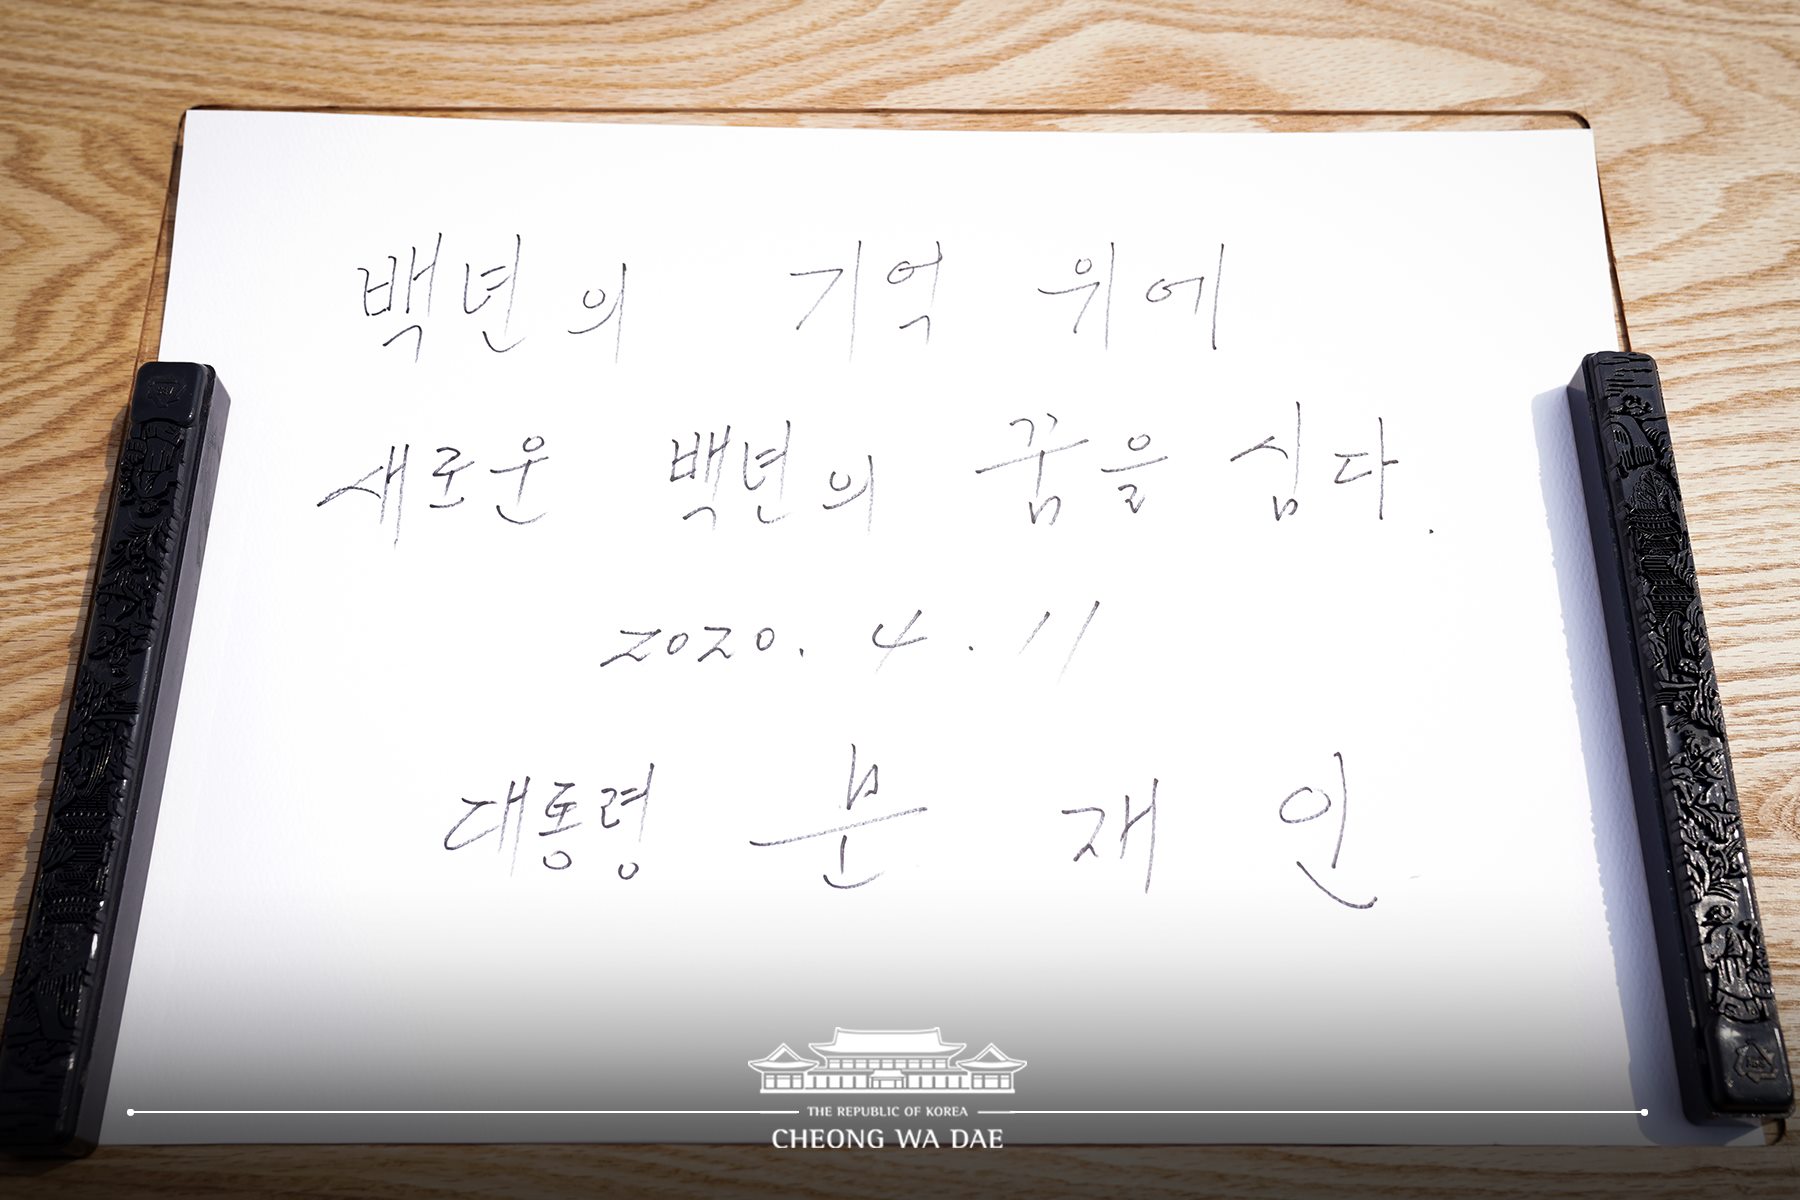 백년의 기억 위에
새로운 백년의 꿈을 심다.
2020. 4. 11
대통령 문재인
THE REPUBLIC OF KOREA
CHEONG WA DAE